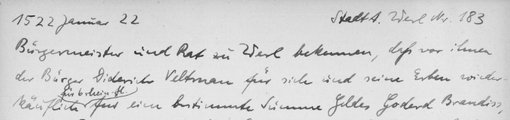 1522 Januar 22 Stadt A. Werl Nr. 183
Bürgermeister und Rat zu Werl bekennen, daß vor ihnen
der Bürger Diderich Veltman für sich und seine Erben wieder-
käuflich für eine bestimmte Summe Geldes Goderd Brandiss,